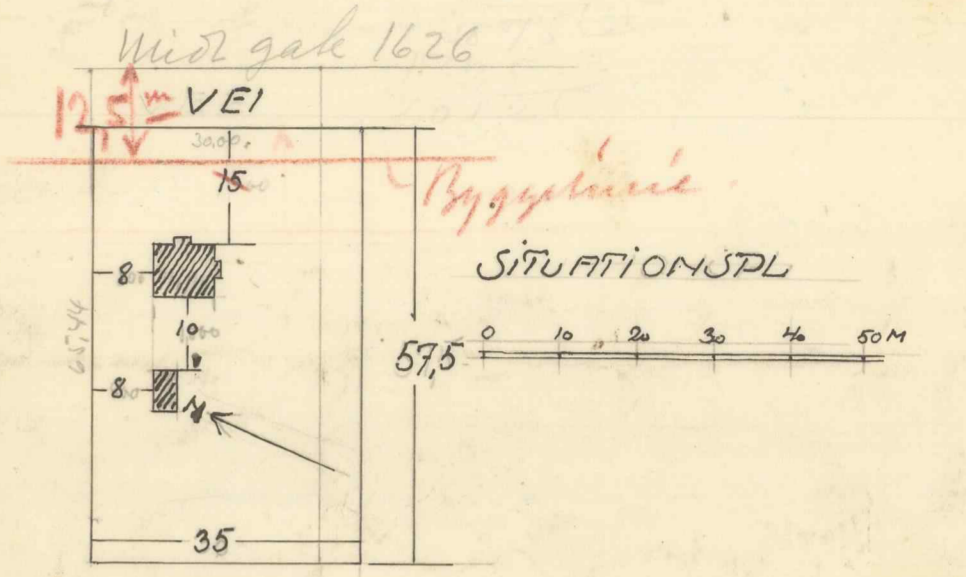 Midt gate 1626
12,5 m VEI
30,00
15
Byggelinie
SITUATIONSPL
8
10
0 10 20 30 40 50 M
65,44
57,5
8
N
35